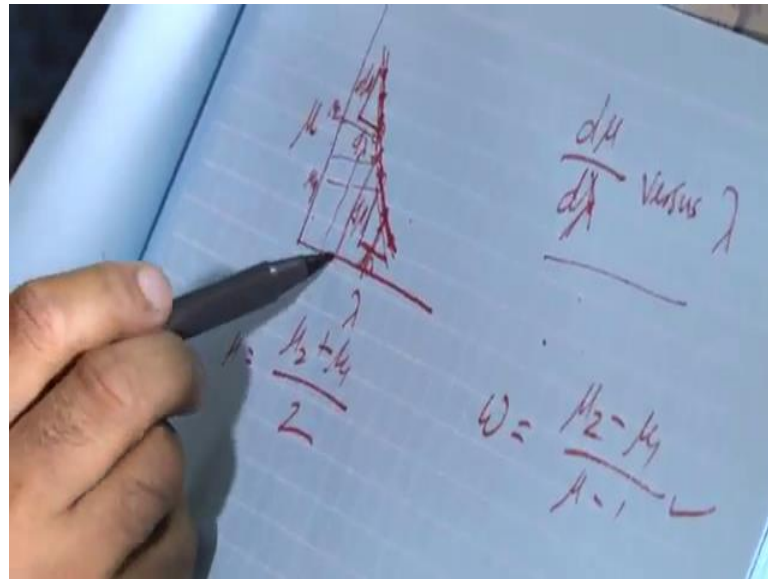 μ
dμ
dλ
dμ
λ
dμ
dλ versus λ
μ = μ2 + μ1
2
ω = μ2 - μ1
μ - 1